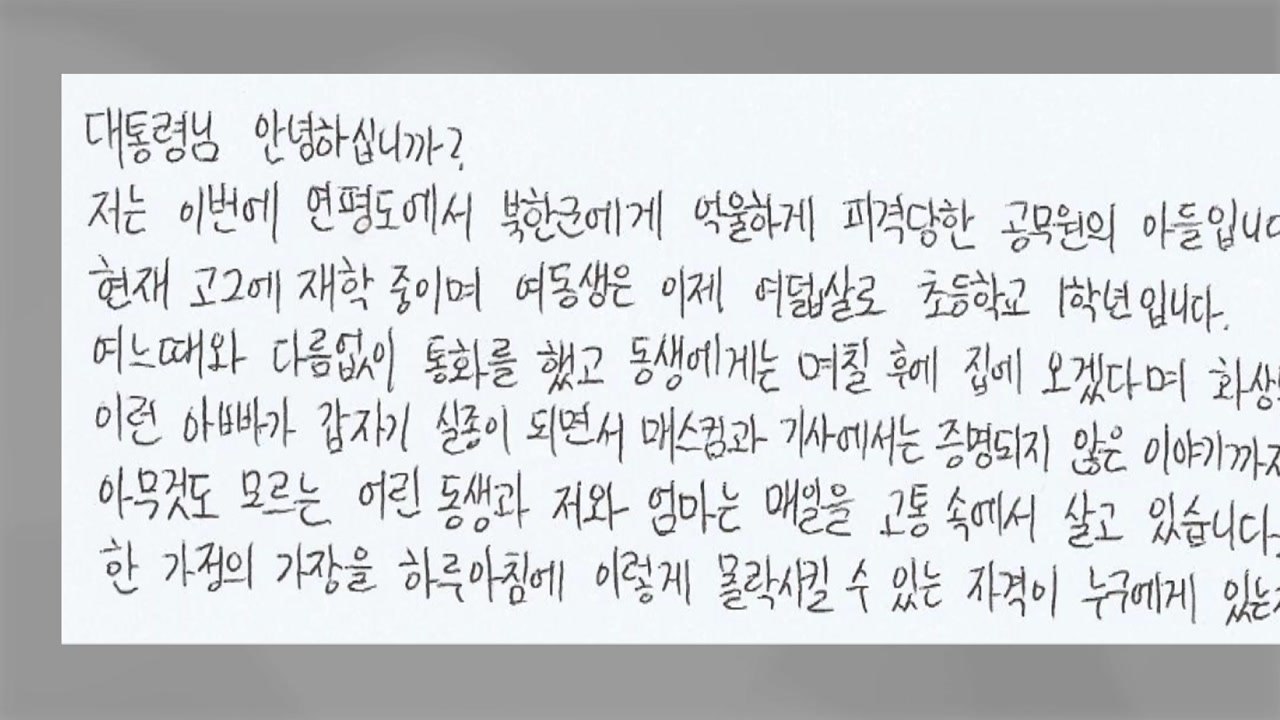 대통령님 안녕하십니까?
저는 이번에 연평도에서 북한군에게 억울하게 피격당한 공무원의 아들입니
현재 고2에 재학 중이며 여동생은 이제 여덟살로 초등학교 1학년입니다.
여느때와 다름없이 통화를 했고 동생에게는 며칠 후에 집에 오겠다며 화상
이런 아빠가 갑자기 실종이 되면서 매스컴과 기사에서는 증명되지 않은 이야기까지
아무것도 모르는 어린 동생과 저와 엄마는 매일을 고통 속에서 살고 있습니다.
한 가정의 가장을 하루아침에 이렇게 몰락시킬 수 있는 자격이 누구에게 있는지